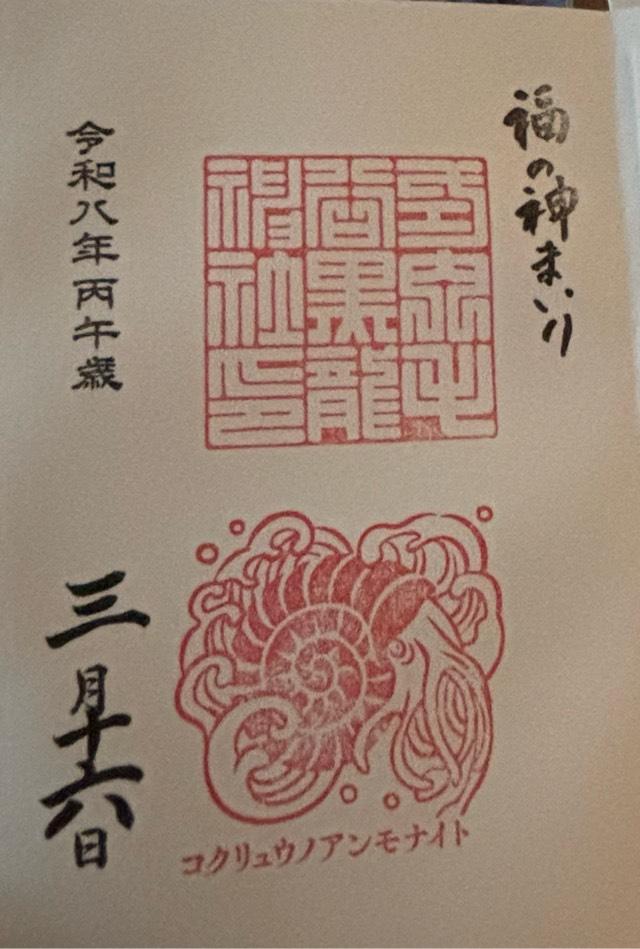 福の神まいり
毛谷黒龍
神社印
コクリュウノアンモナイト
令和八年丙午歳
三月十六日